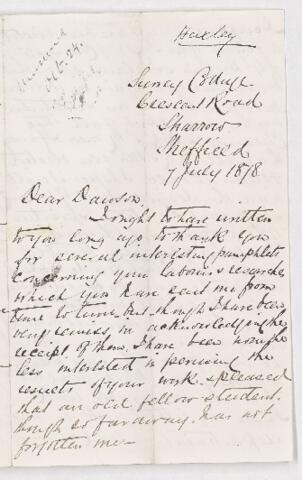 Huxley
Oct. 24.
Surrey Cottage
Crescent Road
Sharrow
Sheffield
7 July 1878
Dear Dawson
I ought to have written
to you long ago to thank you
for several interesting pamphlets
concerning your labours & researches
which you have sent me from
time to time. But though I have been
very remiss, in acknowledging the
receipt of them, I have been none the
less interested in perusing the
result of your work, & pleased
that an old fellow student,
though so far away, has not
forgotten me—